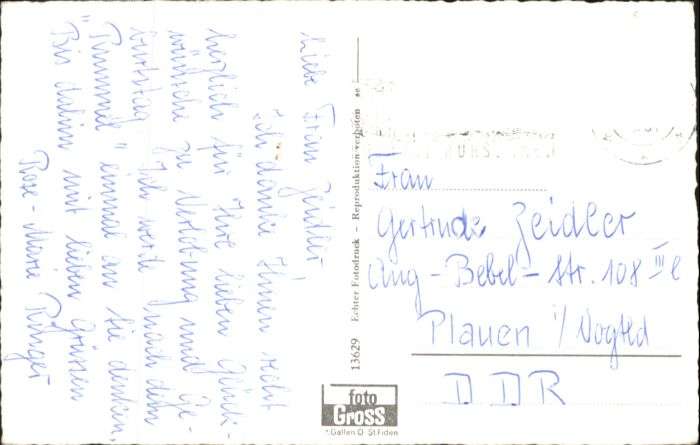 Liebe Frau Zeidler
Ich danke Ihnen recht
herzlich für Ihre lieben Glück-
wünsche zu Verlobung und Ge-
burtstag. Ich werde nach dem
"Rummel" einmal an Sie denken.
Bis dahin mit lieben Grüssen
Rose-Marie Ringer
13629 Echter Fotodruck - Reproduktion verboten
Frau
Gertrude Zeidler
Aug-Bebel-Str. 108 III l
Plauen i/Vogtld
DDR
foto
Gross
St. Fiden